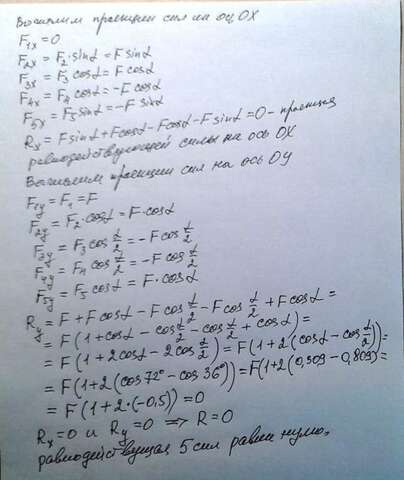 Вычислим проекции сил на ось OX
F₁ₓ = 0
F₂ₓ = F₂·sinα = F sinα
F₃ₓ = F₃ cosα = F cosα
F₄ₓ = F₄ cosα = −F cosα
F₅ₓ = F₅ sinα = −F sinα
Rₓ = F sinα + F cosα − F cosα − F sinα = 0 − проекция
равнодействующей силы на ось OX
Вычислим проекции сил на ось OY
F₁y = F₁ = F
F₂y = F₂·cosα = F·cosα
F₃y = F₃ cos α/2 = −F cos α/2
F₄y = F₄ cos α/2 = −F cos α/2
F₅y = F₅ cosα = F·cosα
Ry = F + F cosα − F cos α/2 − F cos α/2 + F cosα =
= F(1 + cosα − cos α/2 − cos α/2 + cosα) =
= F(1 + 2cosα − 2cos α/2) = F(1 + 2(cosα − cos α/2)) =
= F(1 + 2(cos72° − cos36°)) = F(1 + 2(0,309 − 0,809) =
= F(1 + 2·(−0,5)) = 0
Rₓ = 0 и Ry = 0 ⇒ R = 0
равнодействущая 5 сил равна нулю.